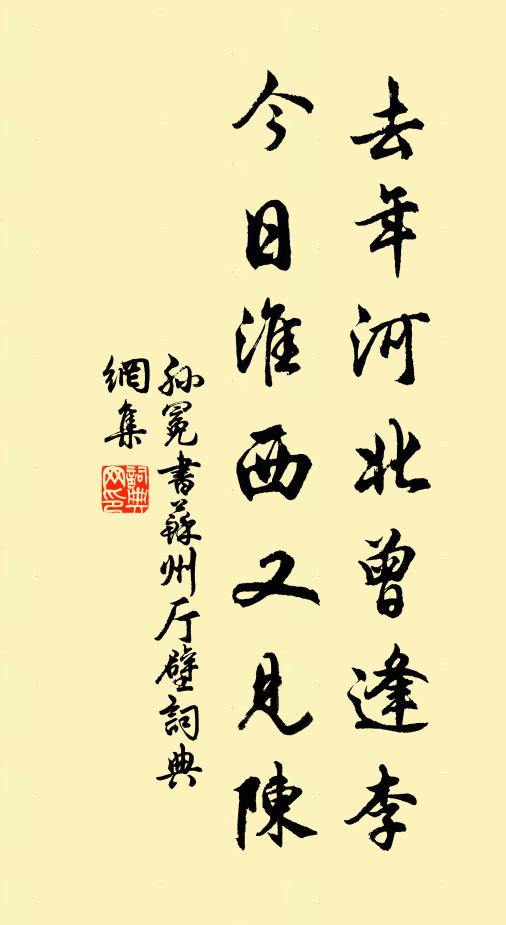 去年河北曾逢李
今日淮西又見陳
孙冕書蘇州厅壁詞典
網集
詞典网印